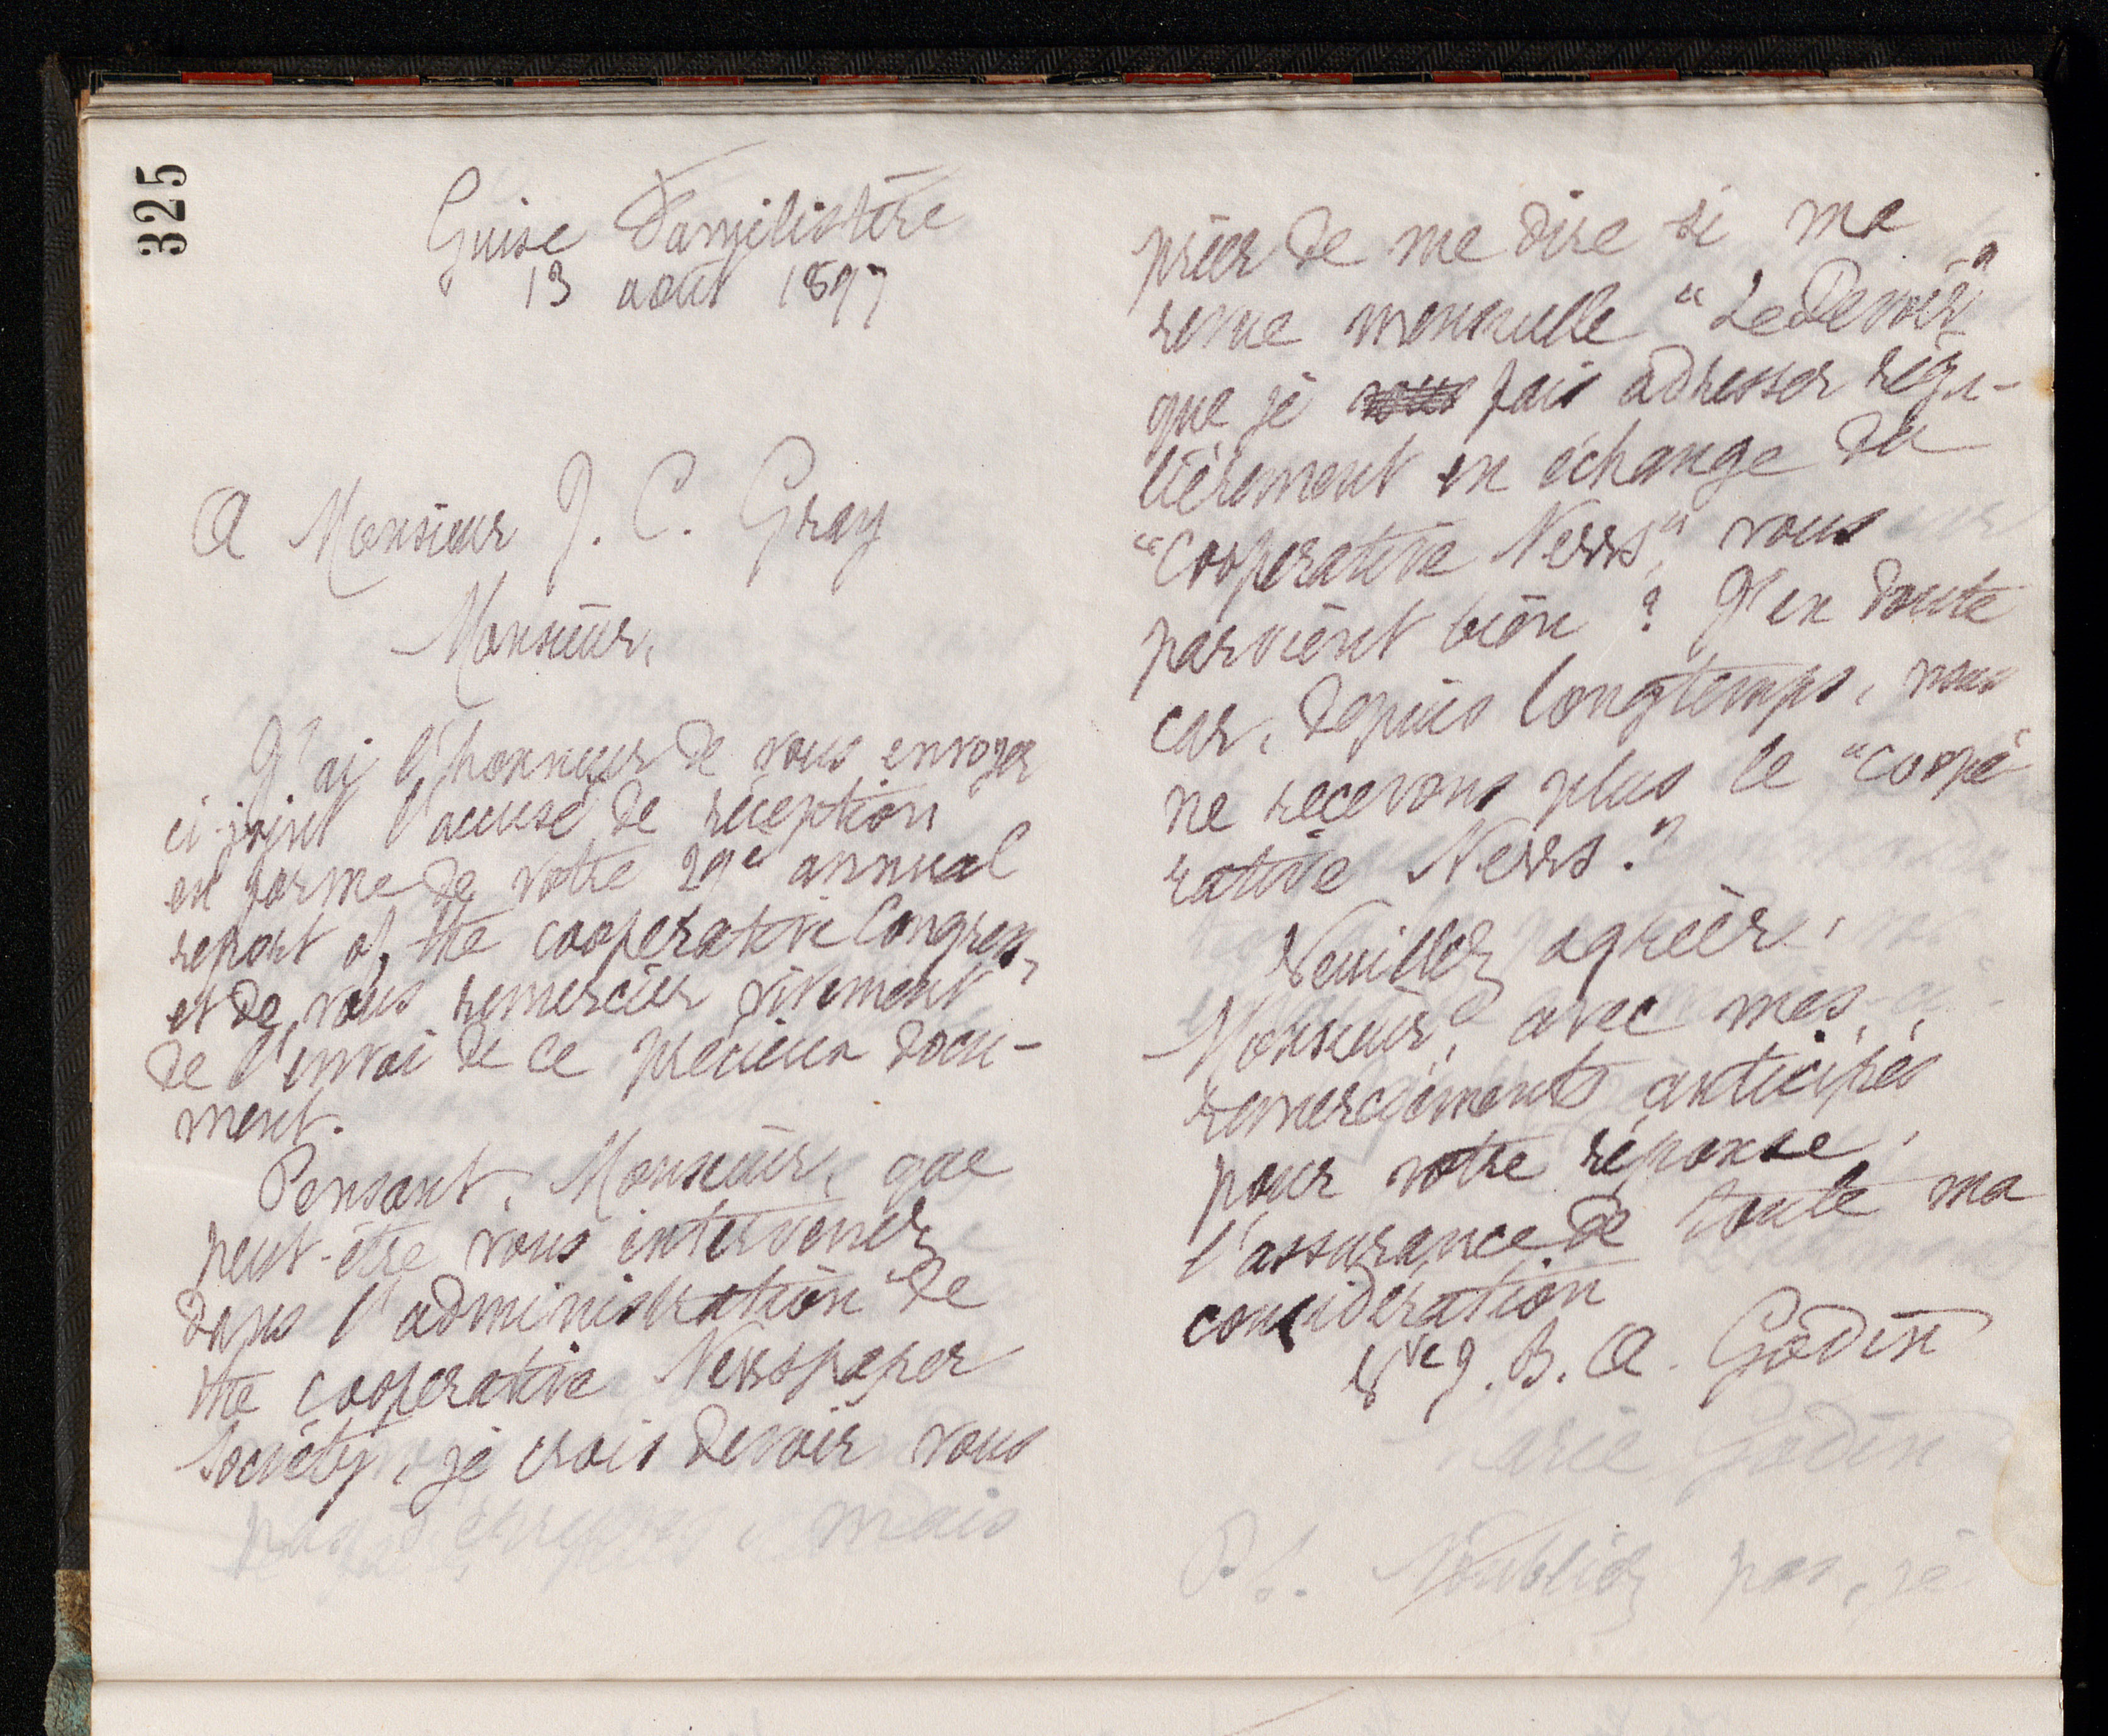 325
Guise Familistère
13 août 1897
A Monsieur J. C. Gray
Monsieur,
J'ai l'honneur de vous envoyer
ci-joint l'accusé de réception
en forme de votre 29e annual
report of the cooperative Congress,
et de vous remercier vivement
de l'envoi de ce précieux docu-
ment.
Pensant, Monsieur, que
peut-être vous intervenez
dans l'administration de
the cooperative Newspaper
Society, je crois devoir vous
prier de me dire si ma
revue mensuelle "Le Devoir"
que je vous fais adresser régu-
lièrement en échange du
"Cooperative News", vous
parvient bien ? J'en doute
car, depuis longtemps, nous
ne recevons plus le "Coopé
rative News."
Veuillez agréer,
Monsieur, avec mes
remerciements anticipés
pour votre réponse,
l'assurance de toute ma
considération
Vve J. B. A. Godin
Marie Godin
mais
P.S. N'oubliez pas, je